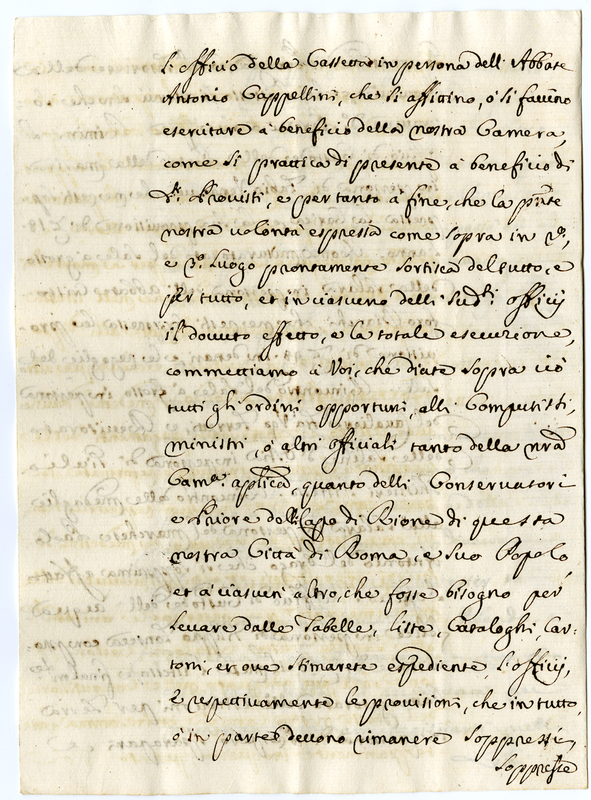 l'officio della Cassetta in persona dell'Abbate
Antonio Cappellini, che si affittino, ò si faccino
esercitare à beneficio della nostra Camera,
come si prattica di presente à beneficio di
d.i Provisti, e per tanto à fine, che la pñte
nostra volontà espressa come sopra in p.o,
e 2.o luogo prontamente sortisca del tutto, e
per tutto, et in ciascuno delli sud.i offitij
il dovuto effetto, e la totale esecuzione,
commettiamo à Voi, che diate sopra ciò
tutti gli ordini opportuni, alli Computisti,
ministri, ò altri officiali tanto della nrã
Cam.a aplica, quanto delli Conservatori
e Priore delli Capo di Rione di questa
nostra Città di Roma, e suo Popolo,
et à ciascun altro, che fosse bisogno per
levare dalle Tabelle, liste, Cataloghi, Car:
toni, et ove stimarete espediente, l'offitij,
e respettivamente le provisioni, che in tutto,
ò in parte devono rimanere soppressi,
soppresse